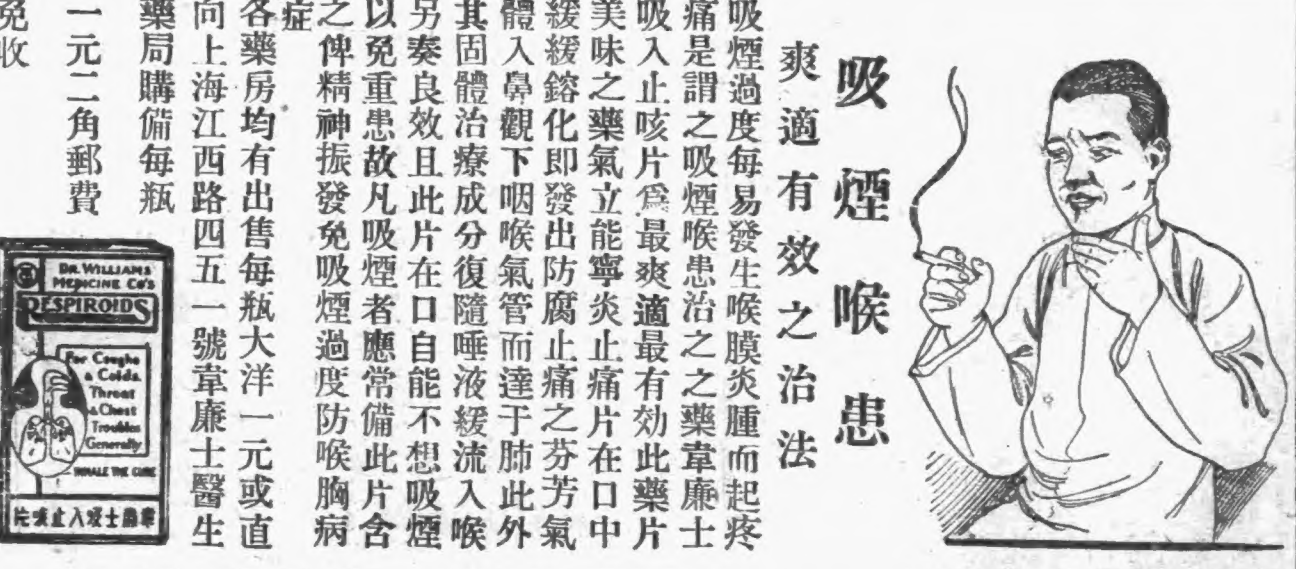 吸煙喉患
爽適有效之治法
吸煙過度每易發生喉膜炎腫而起疼
痛是謂之吸煙喉患治之之藥韋廉士
吸入止咳片爲最爽適最有効此藥片
美味之藥氣立能寧炎止痛片在口中
緩緩鎔化即發出防腐止痛之芬芳氣
體入鼻觀下咽喉氣管而達于肺此外
其固體治療成分復隨唾液緩流入喉
另奏良效且此片在口自能不想吸煙
以免重患故凡吸煙者應常備此片含
之俾精神振發免吸煙過度防喉胸病
症
各藥房均有出售每瓶大洋一元或直
向上海江西路四五一號韋廉士醫生
藥局購備每瓶
一元二角郵費
免收
DR. WILLIAMS
MEDICINE Co's
RESPIROIDS
For Coughs
& Colds
Throat
& Chest
Troubles
Generally
INHALE THE CURE
片咳止入吸士廉韋